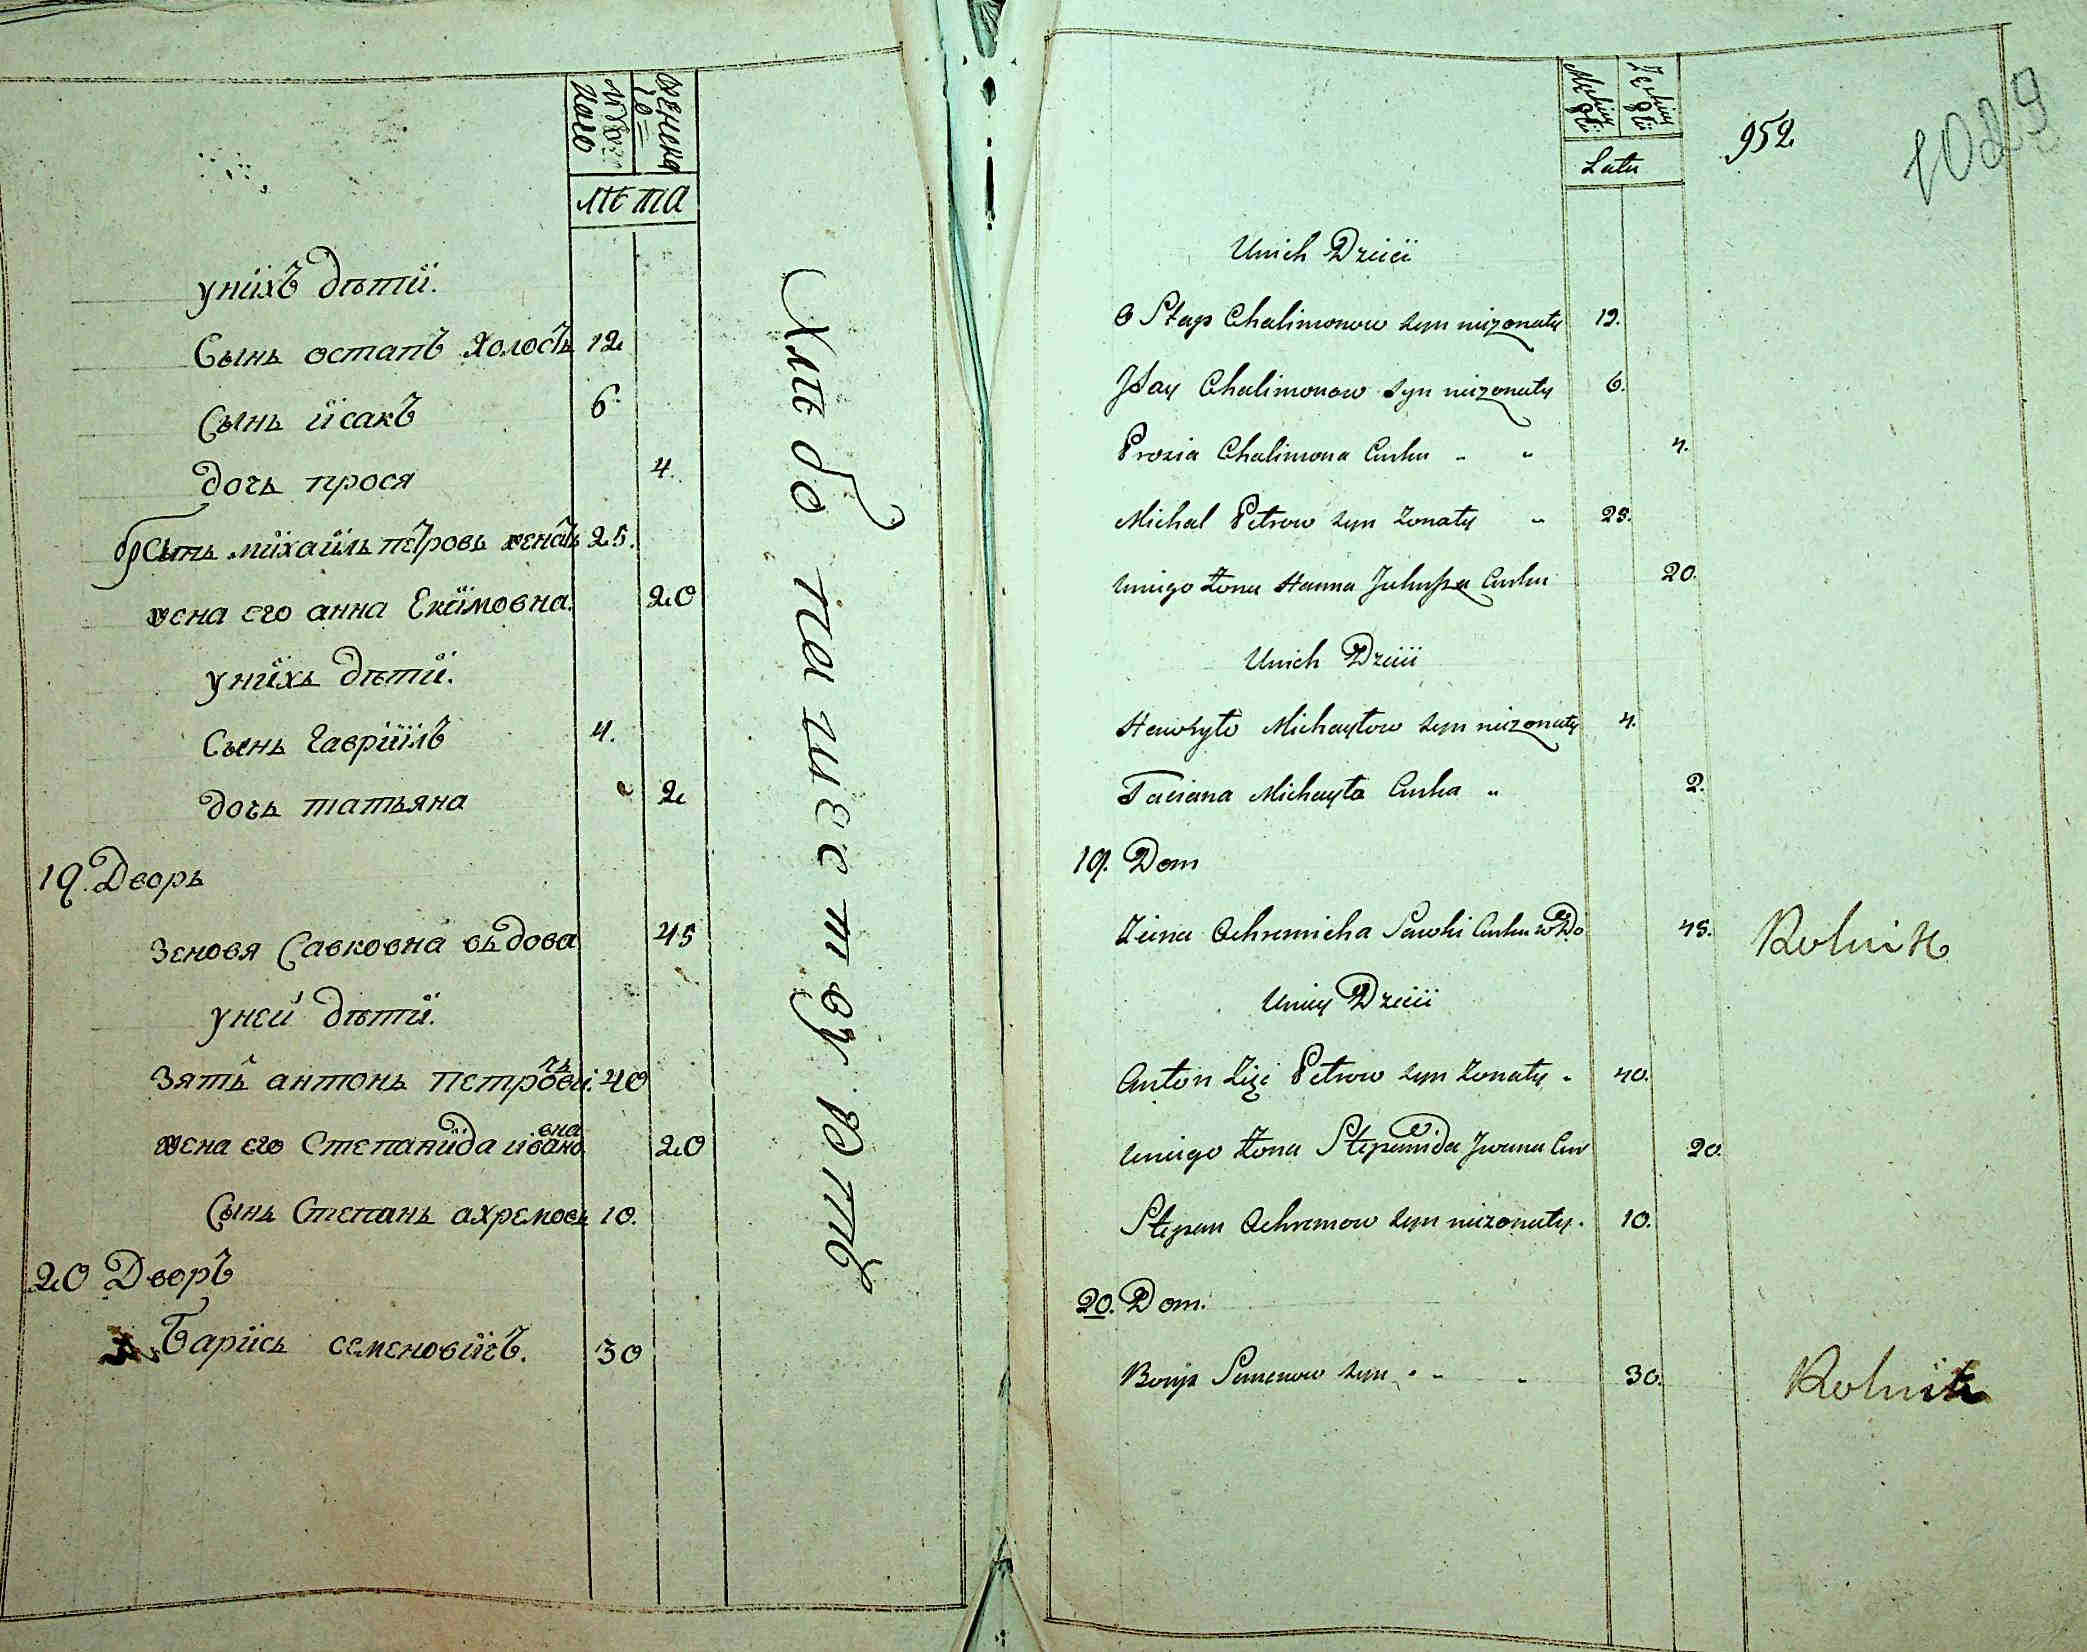 мужеска
ного
женска
го=
лѣта
унихъ дѣти.
Сынъ остапъ холостъ 12
Сынъ исакъ 6
дочь прося 4.
бр Сынъ михаилъ петровъ женатъ 25.
жена его анна Екимовна. 20
унихъ дѣти.
Сынъ гавриилъ 4.
дочь татьяна 2
19. Дворъ
Зеновя Савковна въдова 45
уней дѣти.
Зять антонъ петровичъ. 40
жена его Степанида ивановна 20
Сынъ Степанъ ахремовъ 10.
20 Дворъ
Барись семеновичъ. 30
Хлѣбопашествуютъ
952.
1029
Latu
Unich Dzieci
Ostap Chalimonow syn niezonaty 12.
Isay Chalimonow syn niezonaty 6.
Prosia Chalimona Curka " " 4.
Michal Petrow syn zonaty " 25.
uniego zona Hanna Curka 20.
Unich Dzieci
Hawryło Michayłow syn niezonaty 4.
Taciana Michayła Curka " 2.
19. Dom
Zina Ochremicha Sawki Curka wdo 45. Rolnik
Uniey Dzieci
Anton Zięć Petrow syn zonaty . 40.
uniego zona Stepanida Jwana Cur 20.
Stepan Ochremow syn niezonaty. 10.
20. Dom.
Borys Semenow syn . " " 30. Rolnik